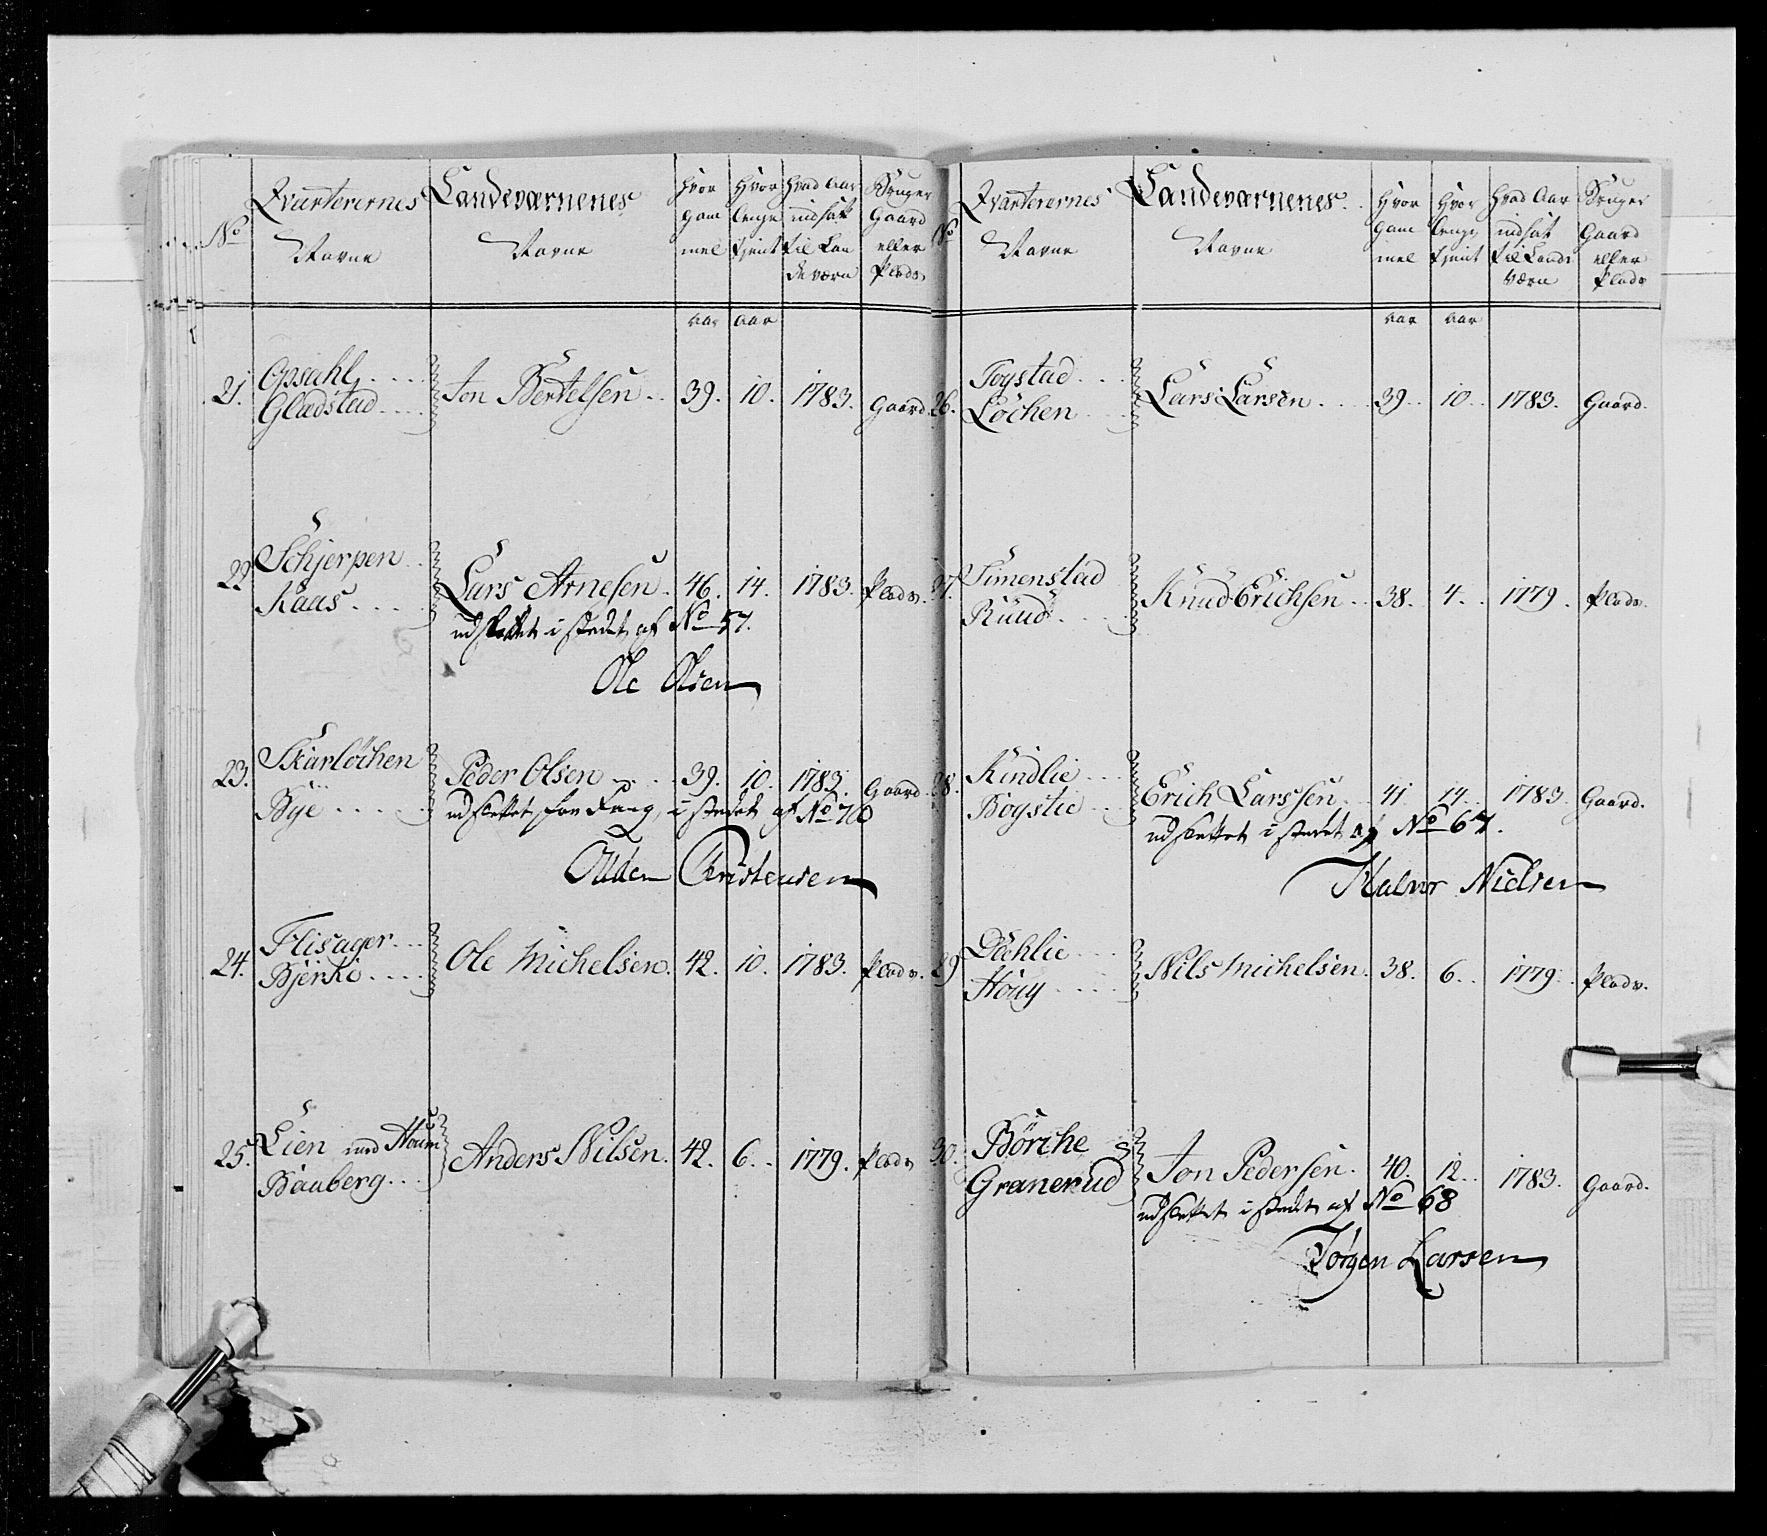 No
Qvarterernes
Navne
Landeværnenes
Navne
Hvor
gam
mel
Hvor
lenge
tjent
Hvad Aar
indsatt
til Lan
deværn
Bruger
Gaard
eller
Plads
aar aar
21. Opsahl
Gladstad
Jon Bertelsen 39. 10. 1783. Gaard
22 Schjerpen
Kaas
Lars Arnesen 46. 14. 1783. Plads.
udslettet i stedet af No 57.
Ole Olsen
23. Skarløchen
Bye
Peder Olsen 39. 10. 1783. Gaard
udslettet i stedet af No 70
Christensen
24. Flisager
Bjerke
Ole Michelsen. 42. 10. 1783. Plads.
25. Lien med Houm
Bauberg
Anders Nilsen. 42. 6. 1779. Plads
No
Qvarterernes
Navne
Landeværnenes
Navne
Hvor
gam
mel
Hvor
lenge
tjent
Hvad Aar
indsat
til Lands
værn
Bruger
Gaard
eller
Plads
aar aar
26. Togstad
Løchen
Lars Larsen 39. 10. 1783. Gaard.
27. Simenstad
Ruud
Knud Erichsen 38. 4. 1779. Plads.
28. Kindlie
Bøgstie
Erich Larssen 41. 14. 1783. Gaard.
udslettet i stedet af No 67.
Halvor Nielsen
29 Dæhlie
Houg
Nils Michelsen. 38. 6. 1779. Plads.
30. Børche
Granerud
Jon Pedersen. 40. 12. 1783. Gaard.
udslettet i stedet af No 68
Jørgen Larsen